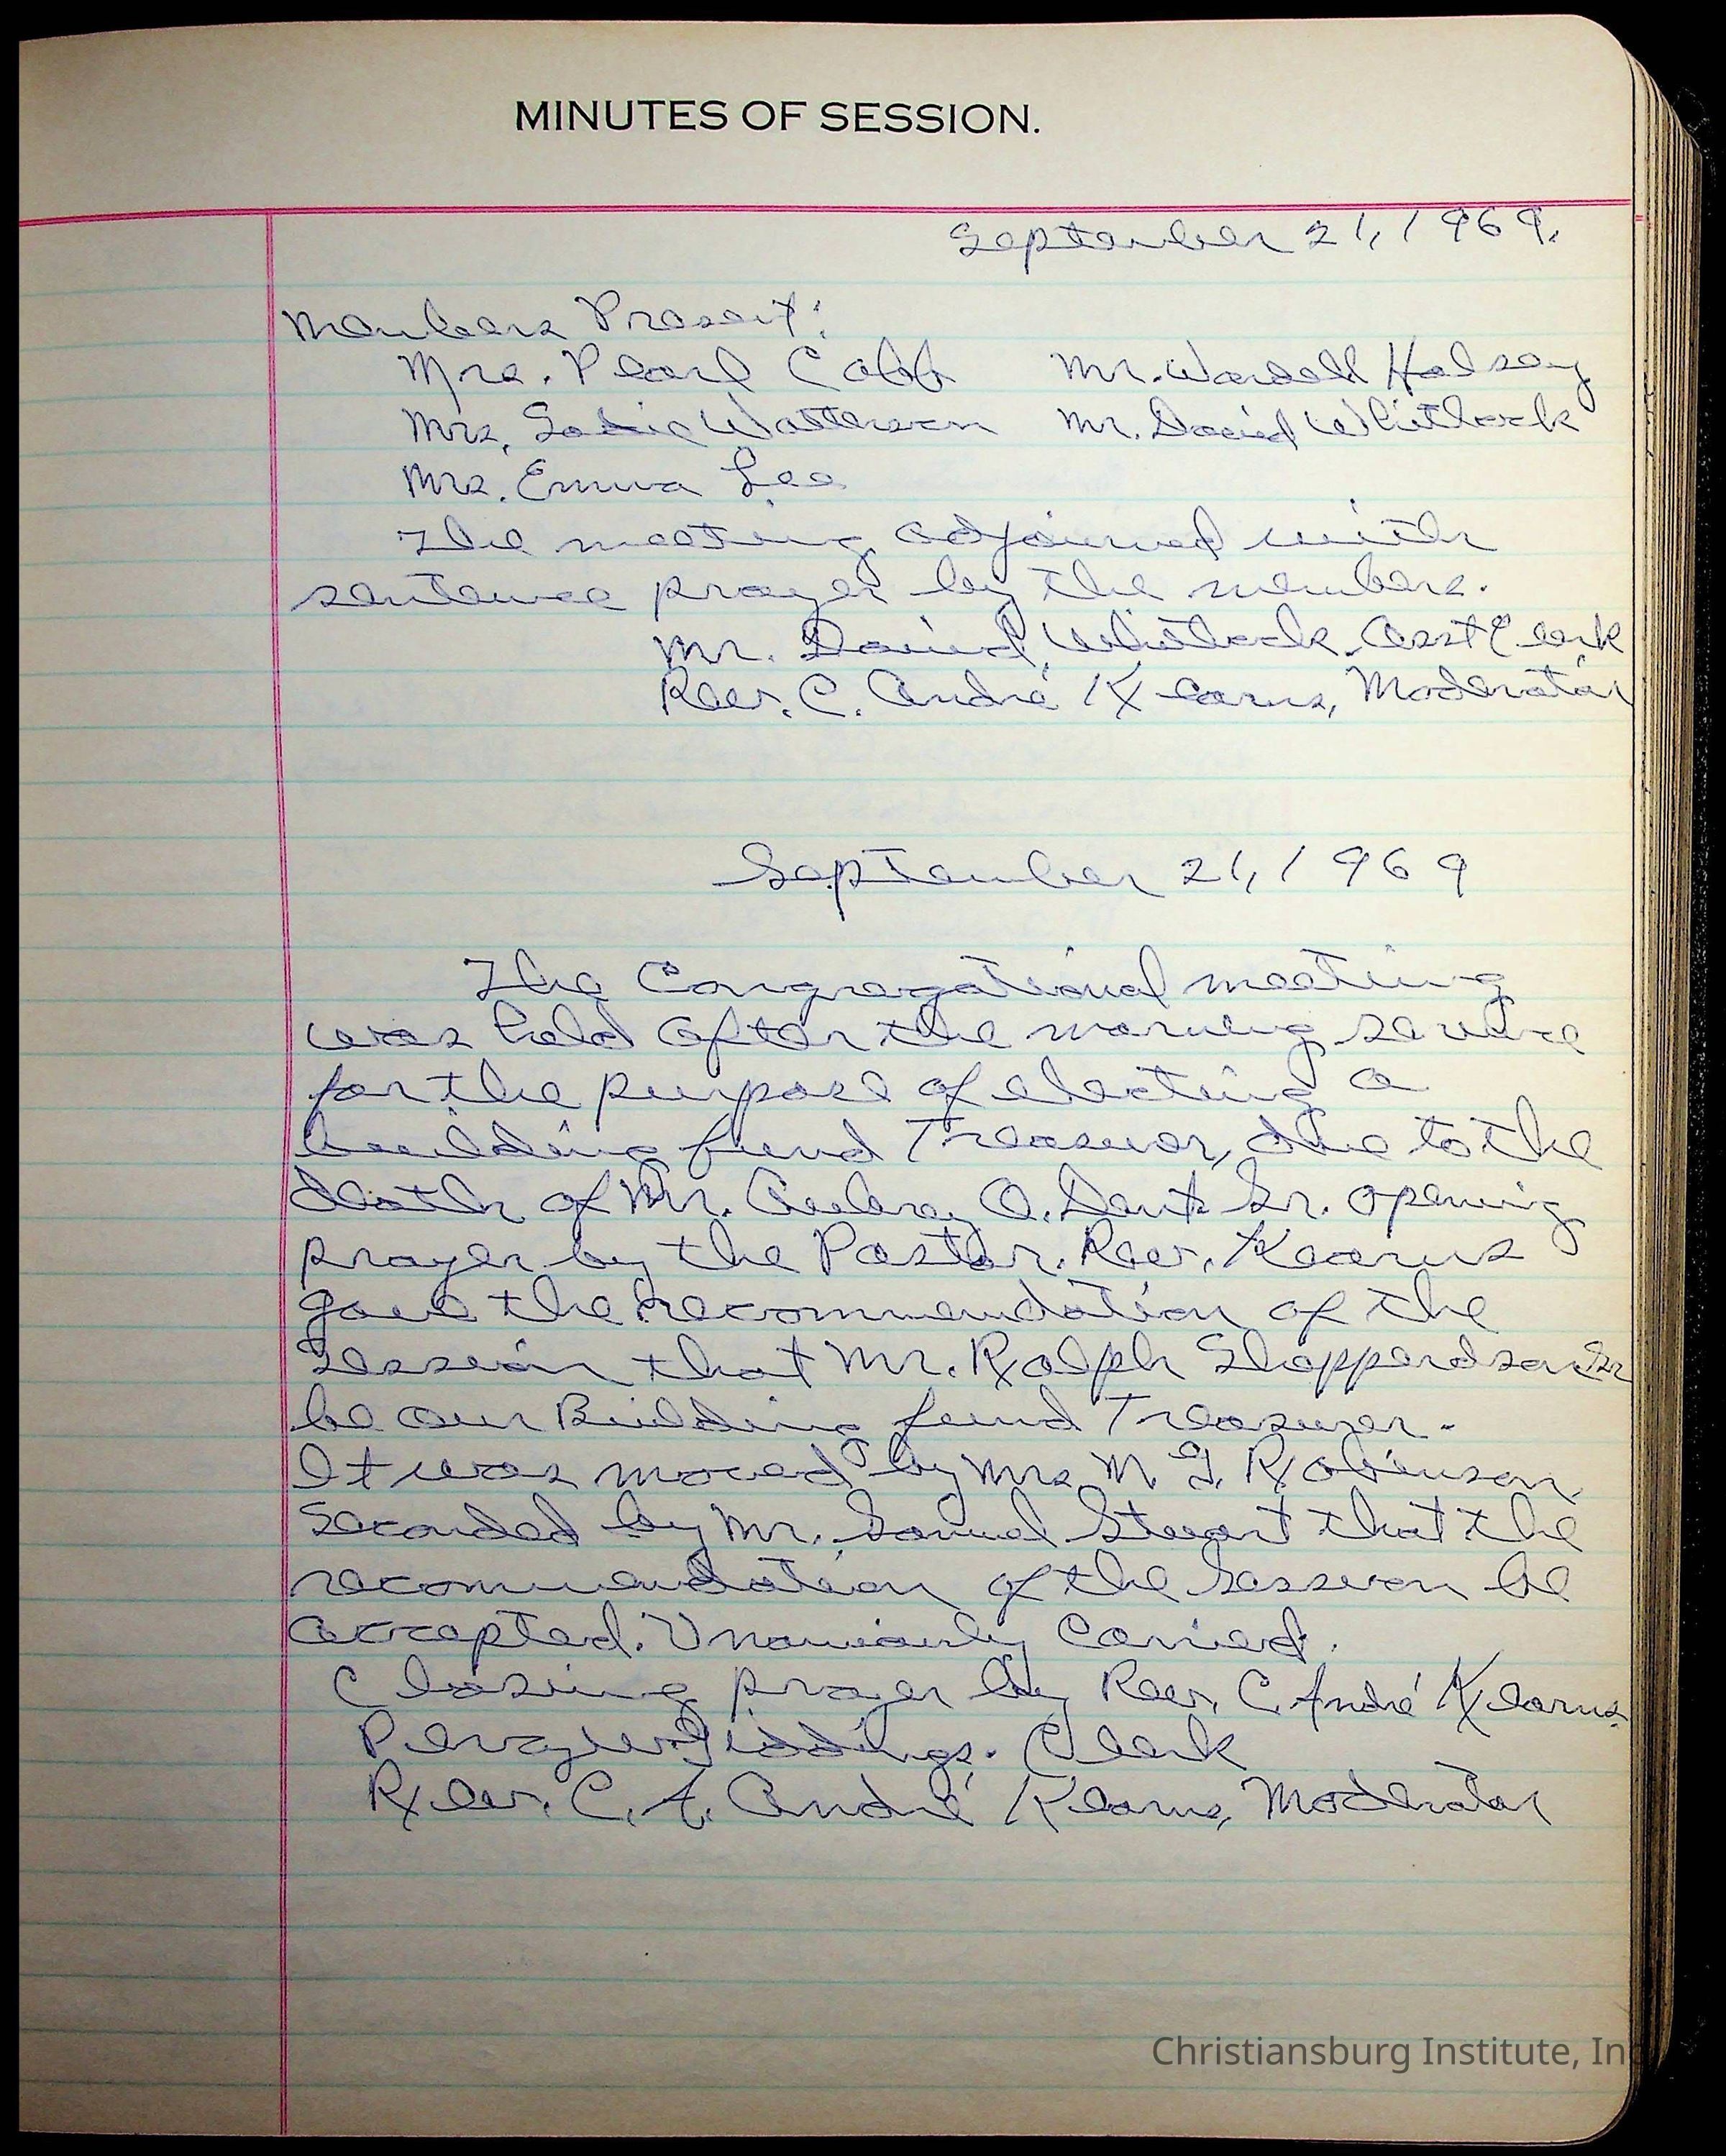 MINUTES OF SESSION.
September 21, 1969.
Members Present:
Mrs. Pearl Cobb Mr. Wardell Halsey
Mrs. Sadie Watterson Mr. David Whitlock
Mrs. Emma Lee
The meeting adjourned with
sentence prayer by the members.
Mr. David Whitlock. Asst Clerk
Rev. C. André Kearns, Moderator
September 21, 1969
The Congregational meeting
was held after the morning service
for the purpose of electing a
building fund Treasurer, due to the
death of Mr. Aubrey O. Dent Sr. opening
prayer by the Pastor. Rev. Kearns
gave the recommendation of the
Session that Mr. Ralph Sheppardson Sr
be our Building fund Treasurer.
It was moved by Mrs M. G. Robinson,
Seconded by Mr. Samuel Stewart that the
recommendation of the Session be
accepted. Unanimously Carried.
Closing prayer by Rev. C. André Kearns
Giddings. Clerk
Rev. C. A. André Kearns, Moderator
Christiansburg Institute, Inc